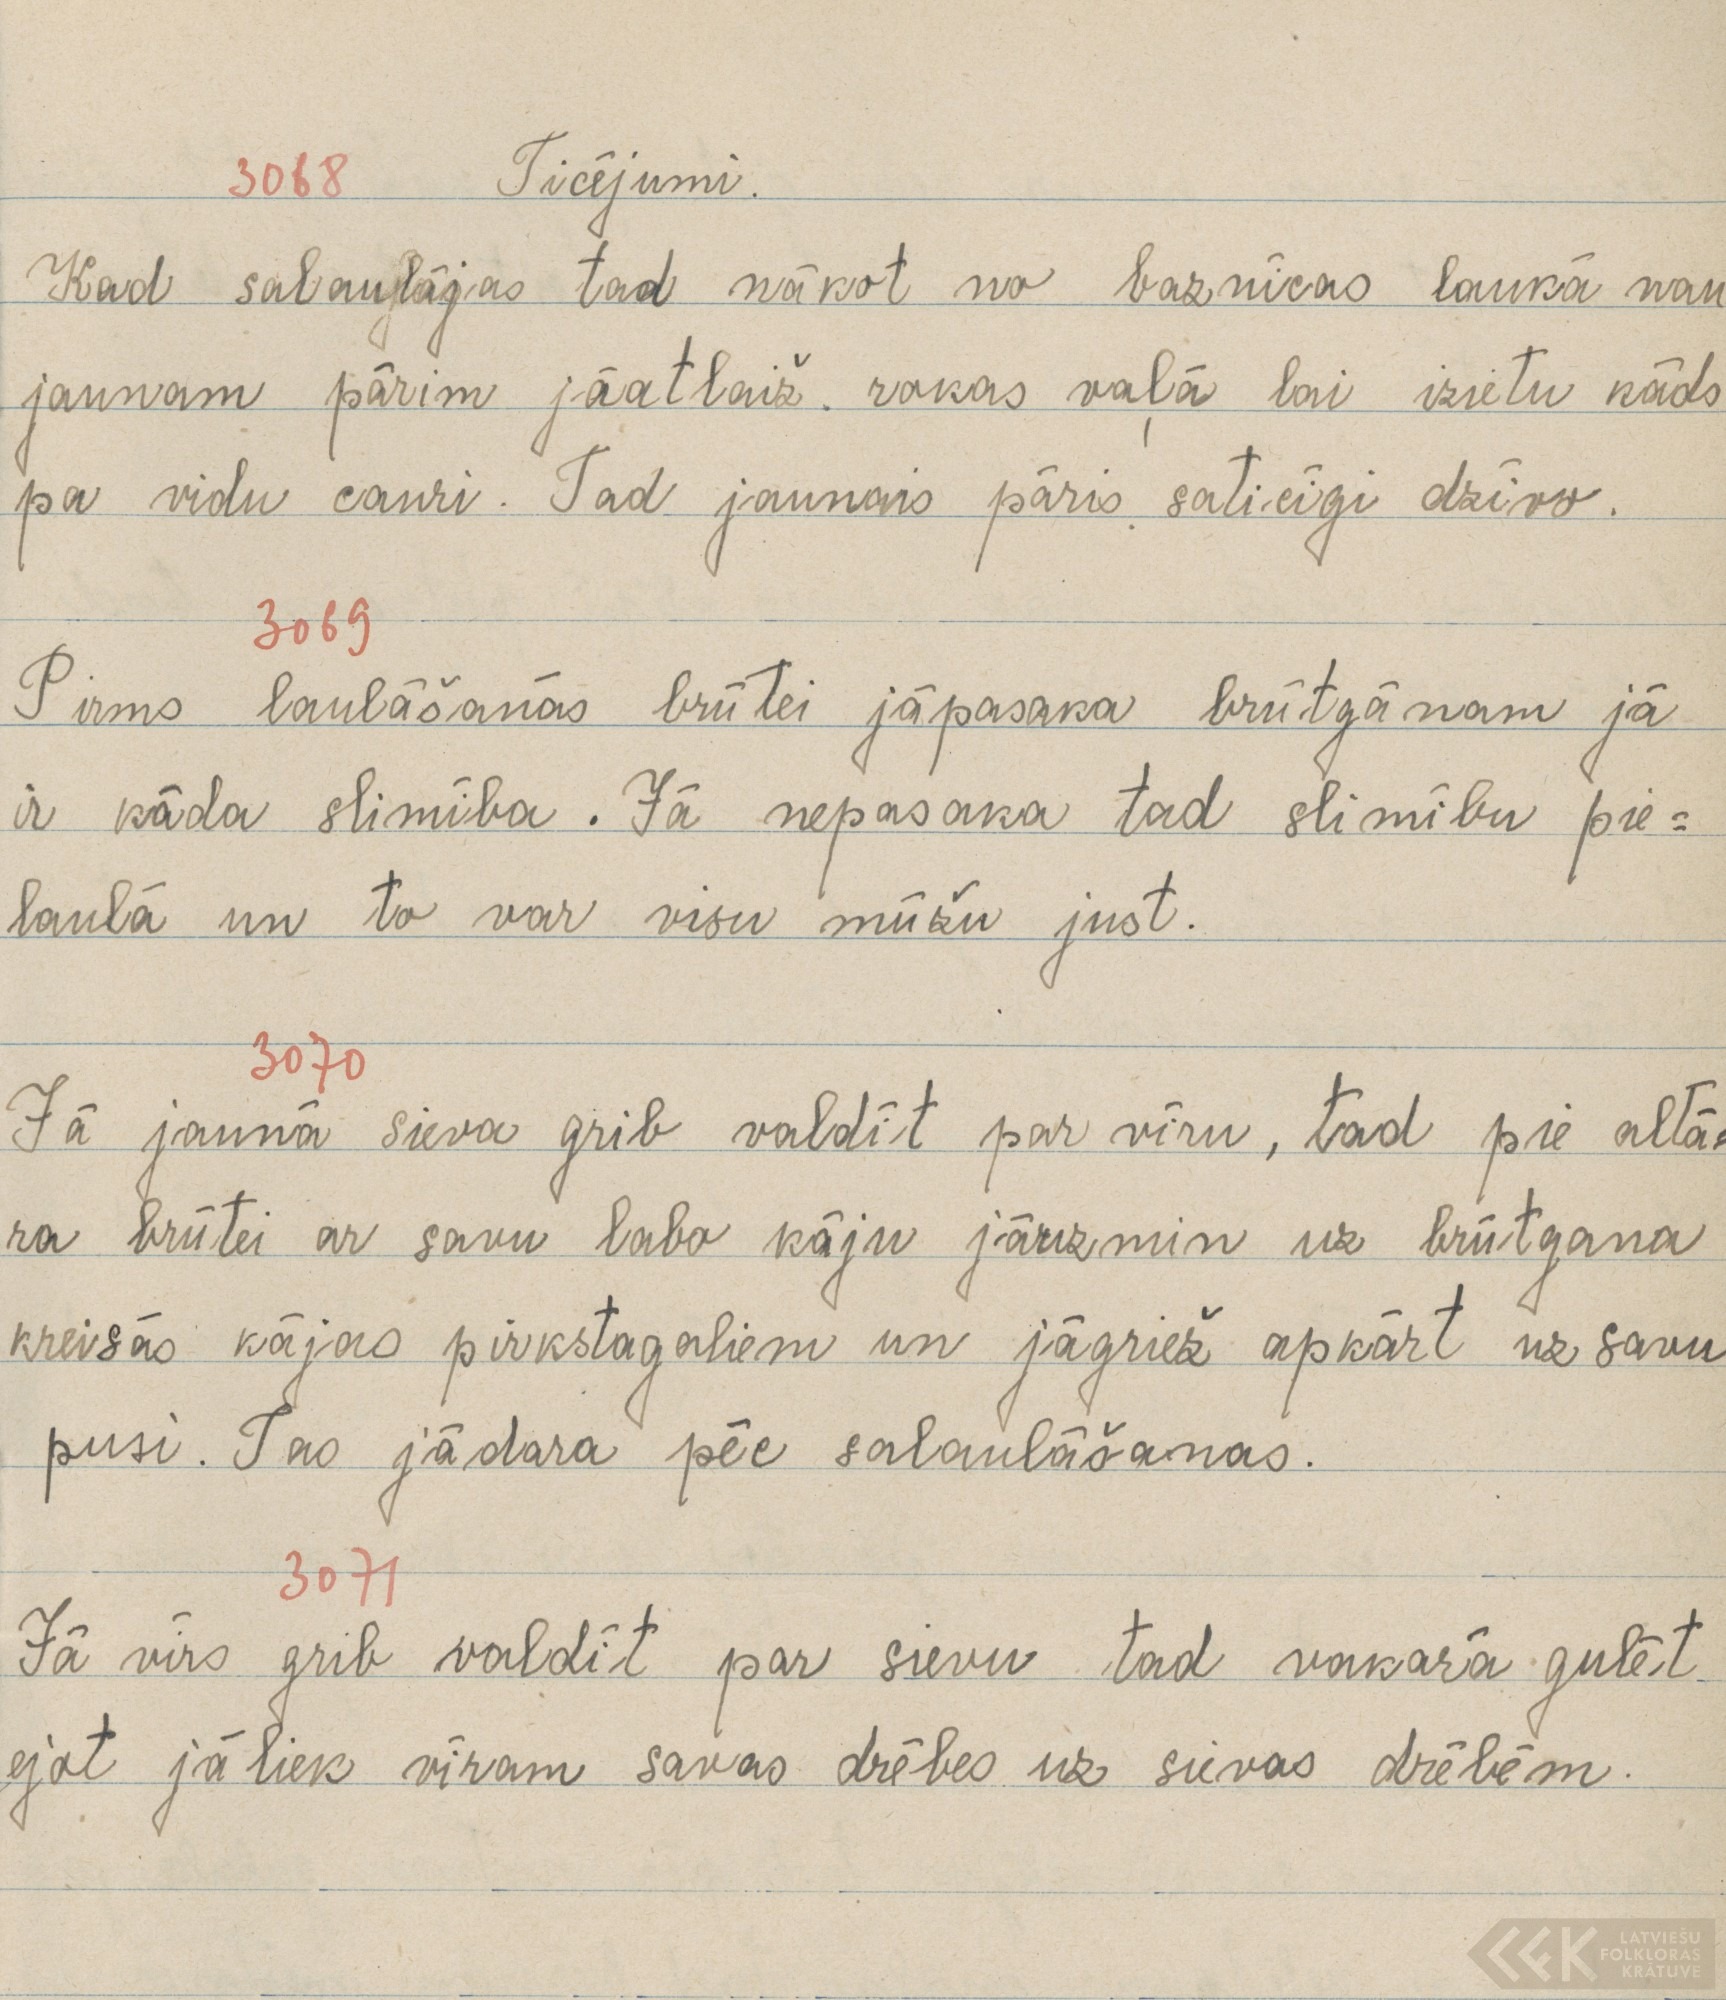 3068 Ticējumi.
Kad salaulājas tad nākot no baznīcas laukā nau
jaunam pārim jāatlaiž rokas vaļā lai izietu kāds
pa vidu cauri. Tad jaunais pāris saticīgi dzīvo.
3069
Pirms laulāšanās brūtei jāpasaka brūtgānam jā
ir kāda slimība. Jā nepasaka tad slimību pie=
laulā un to var visu mūžu just.
3070
Jā jaunā sieva grib valdīt par vīru, tad pie altā=
ra brūtei ar savu labo kāju jāuzmin uz brūtgana
kreisās kājas pirkstagaliem un jāgriež apkārt uz savu
pusi. Tas jādara pēc salaulāšanas.
3071
Jā vīrs grib valdīt par sievu tad vakarā gulēt
ejot jāliek vīram savas drēbes uz sievas drēbēm.
LATVIEŠU
FOLKLORAS
KRĀTUVE